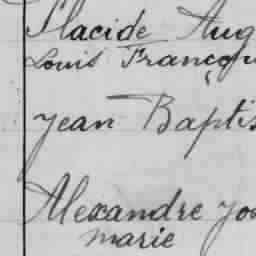 Placide Aug
Louis Franço
Jean Baptis
Alexandre Jos
Marie